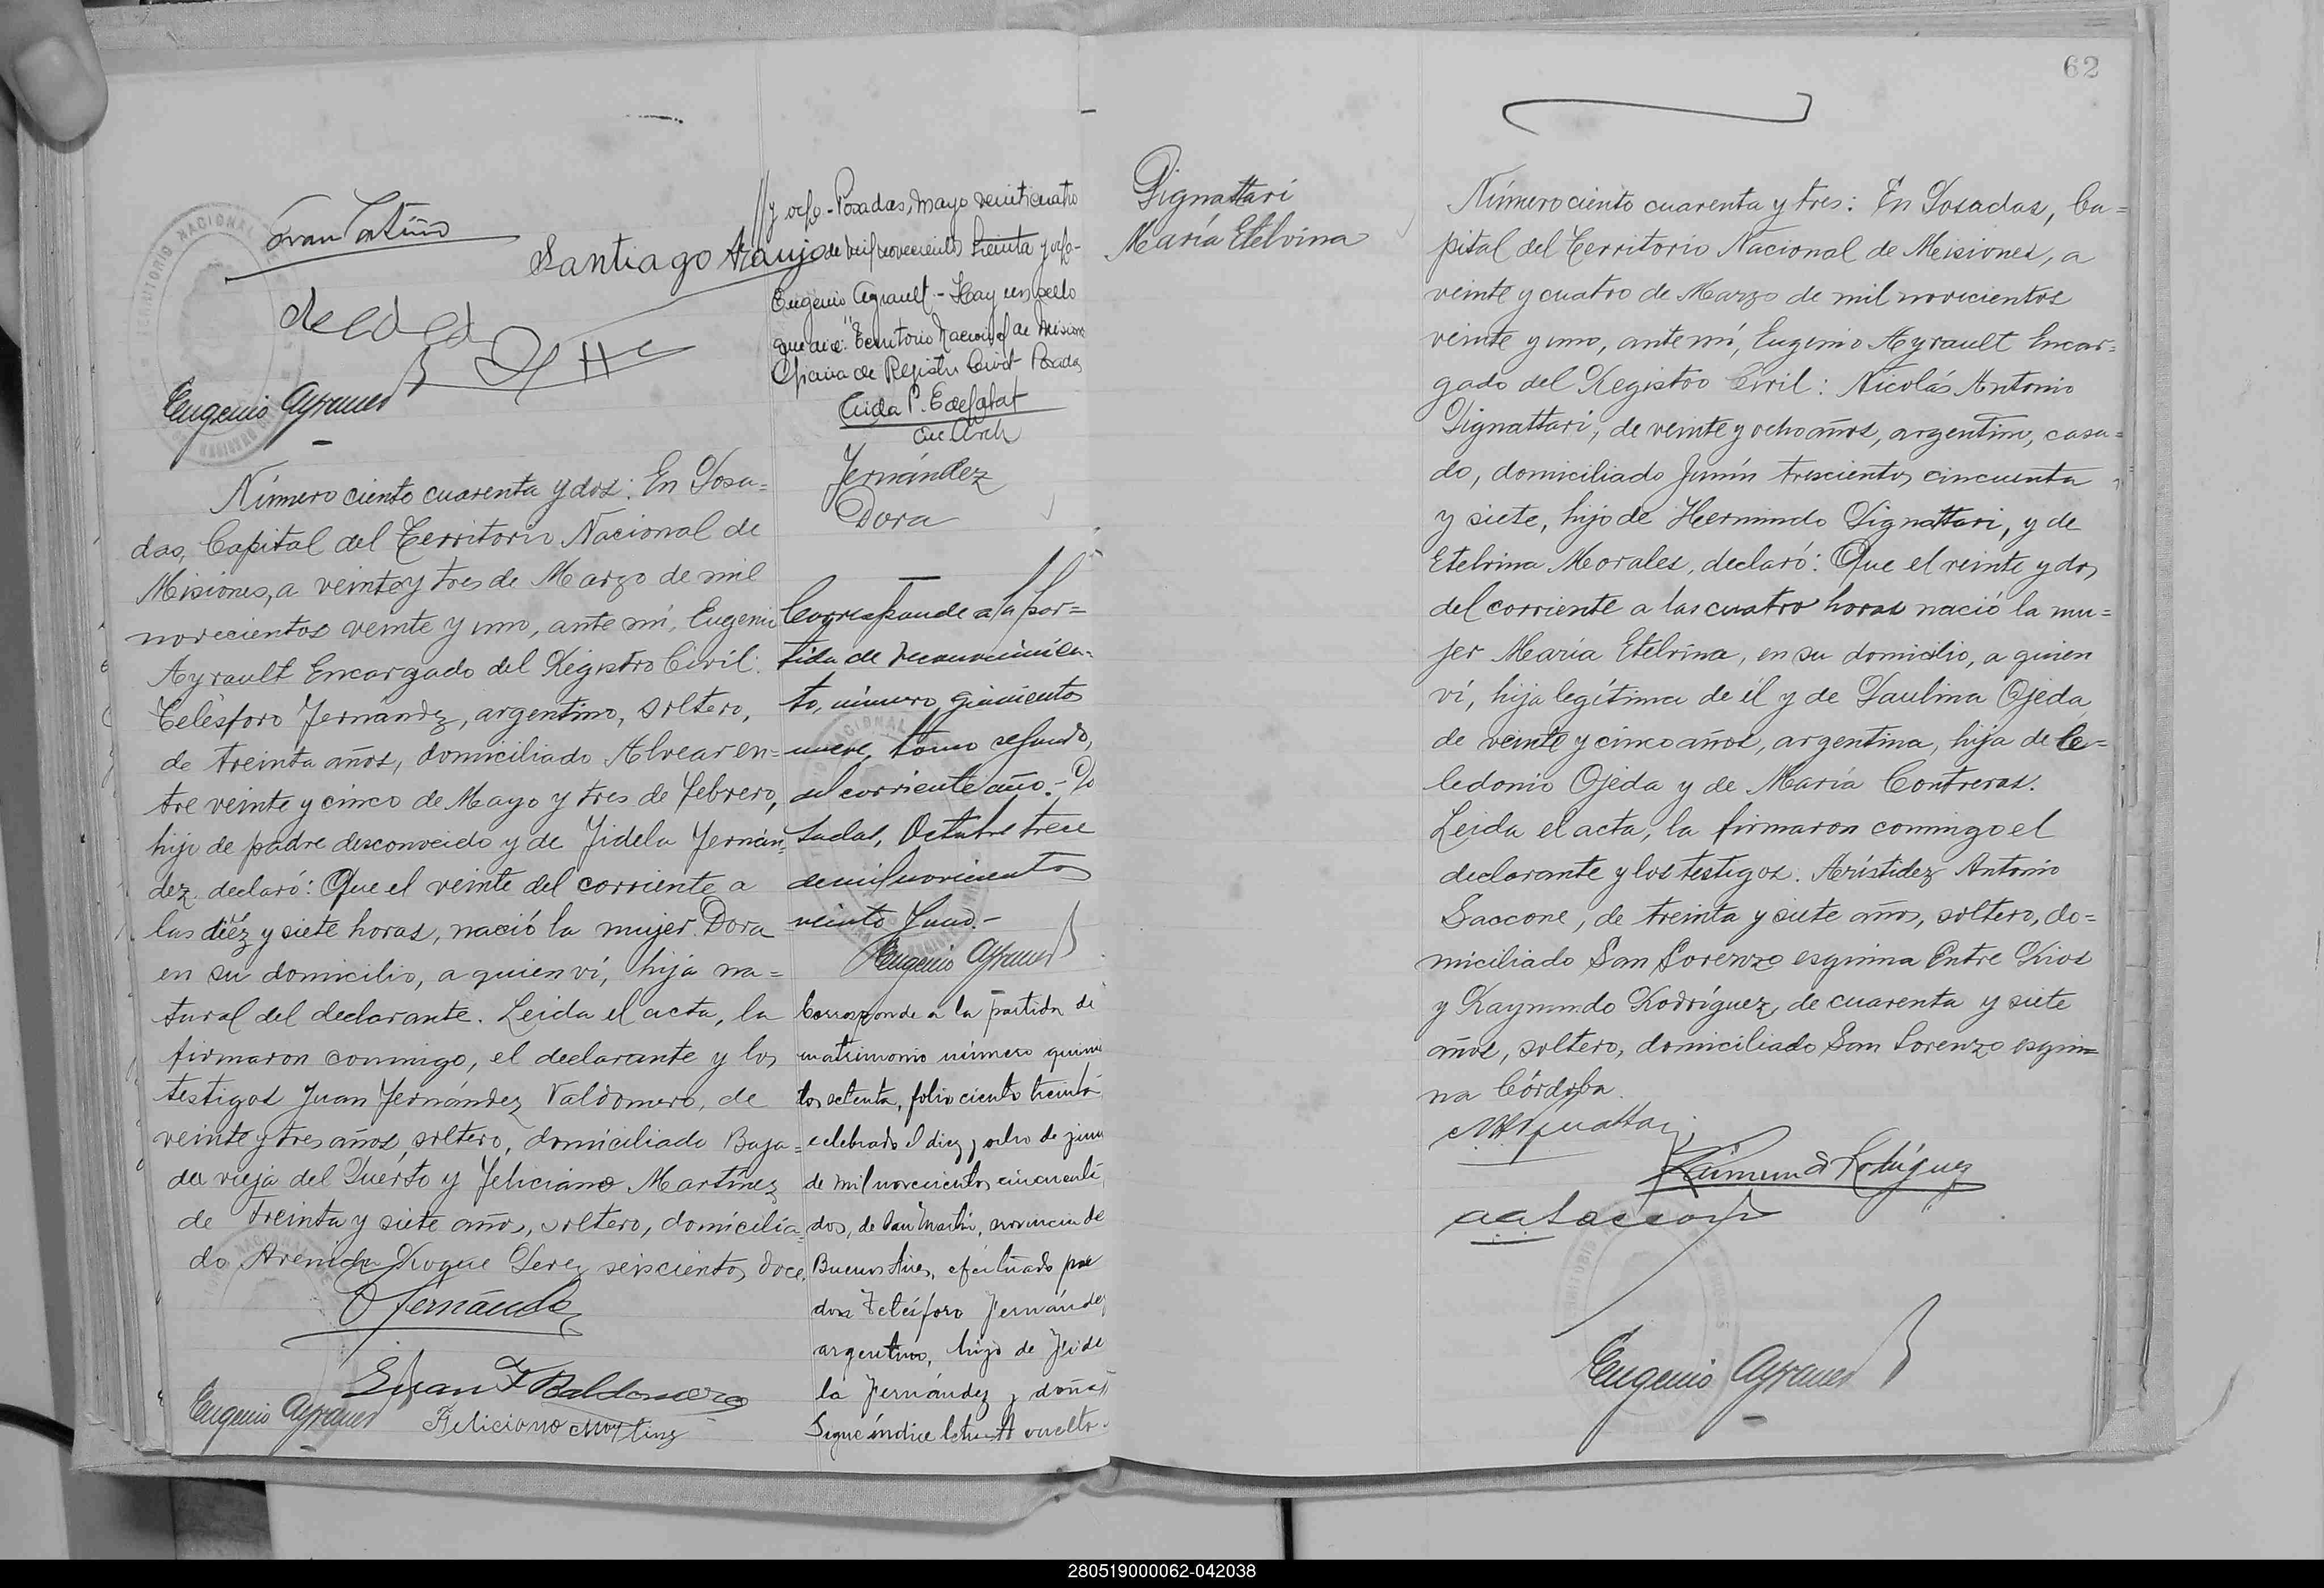 62
Santiago Araujo
Eugenio Ayrault
Número ciento cuarenta y dos: En Posa=
das, Capital del Territorio Nacional de
Misiones, a veinte y tres de Marzo de mil
novecientos veinte y uno, ante mí, Eugenio
Ayrault Encargado del Registro Civil:
Telésforo Fernandez, argentino, soltero,
de treinta años, domiciliado Alvear en=
tre veinte y cinco de Mayo y tres de febrero,
hijo de padre desconocido y de Fidela Fernán=
dez, declaró: Que el veinte del corriente a
las diéz y siete horas, nació la mujer Dora
en su domicilio, a quien ví, hija na=
tural del declarante. Leida el acta, la
firmaron conmigo, el declarante y los
testigos Juan Fernández Valdomero, de
veinte y tres años, soltero, domiciliado Baja=
da vieja del Puerto y Feliciano Martínez
de treinta y siete años, soltero, domicilia=
do Avenida Roque Perez seiscientos doce.
Fernández
Juan F Baldomero
Eugenio Ayrault
Feliciano Martinez
//y ocho - Posadas, mayo veinticuatro
de mil novecientos treinta y ocho-
Eugenio Ayrault - Hay un sello
que dice: "Territorio Nacional de Misiones
Oficina de Registro Civil Posadas
Fernández
Dora
Corresponde a la par=
tida de reconocimien=
to, número quinientos
nueve, tomo segundo,
del corriente año.- Po
sadas, Octubre trece
de mil novecientos
veinte y uno.-
Eugenio Ayrault
Corresponde a la partida de
matrimonio número quinien
tos setenta, folio ciento treinta
celebrado el diez y ocho de junio
de mil novecientos cincuenti
dos, de San Martín, provincia de
Buenos Aires, efectuado por
don Telésforo Fernández
argentino, hijo de Fide
la Fernández y doña
Sigue índice letra A vuelta.
Pignattari
María Etelvina
Número ciento cuarenta y tres: En Posadas, Ca=
pital del Territorio Nacional de Misiones, a
veinte y cuatro de Marzo de mil novecientos
veinte y uno, ante mí, Eugenio Ayrault Encar=
gado del Registro Civil: Nicolás Antonio
Pignattari, de veinte y ocho años, argentino, casa=
do, domiciliado Junín trescientos cincuenta
y siete, hijo de Hermindo Pignattari, y de
Etelvina Morales, declaró: Que el veinte y dos
del corriente a las cuatro horas nació la mu=
jer María Etelvina, en su domicilio, a quien
ví, hija legítima de él y de Paulina Ojeda
de veinte y cinco años, argentina, hija de Ce=
ledonio Ojeda y de María Contreras.
Leida el acta, la firmaron conmigo el
declarante y los testigos. Arístidez Antonio
Saccone, de treinta y siete años, soltero, do=
miciliado San Lorenzo esquina Entre Rios
y Raymundo Rodríguez, de cuarenta y siete
años, soltero, domiciliado San Lorenzo esqui=
na Córdoba.
NAPignattari
Raimundo Rodríguez
aaSaccone
Eugenio Ayrault
280519000062-042038